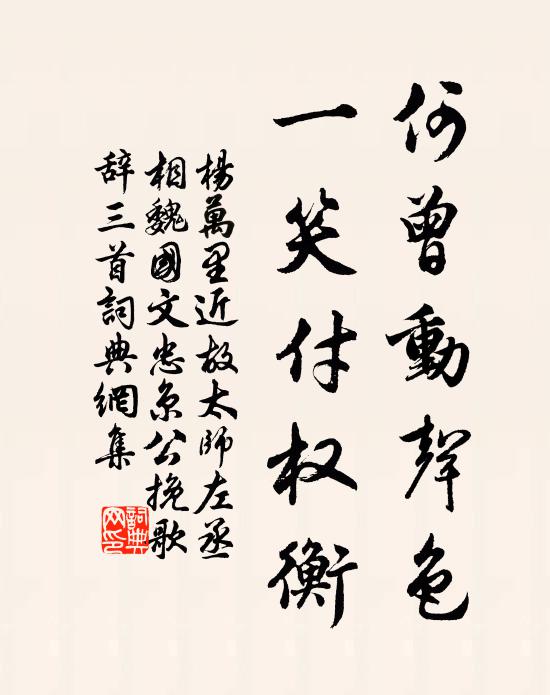 何曾動聲色
一笑付权衡
楊萬里近故太師左丞
相魏國文忠京公挽歌
辞三首詞典網集
詞典
网印